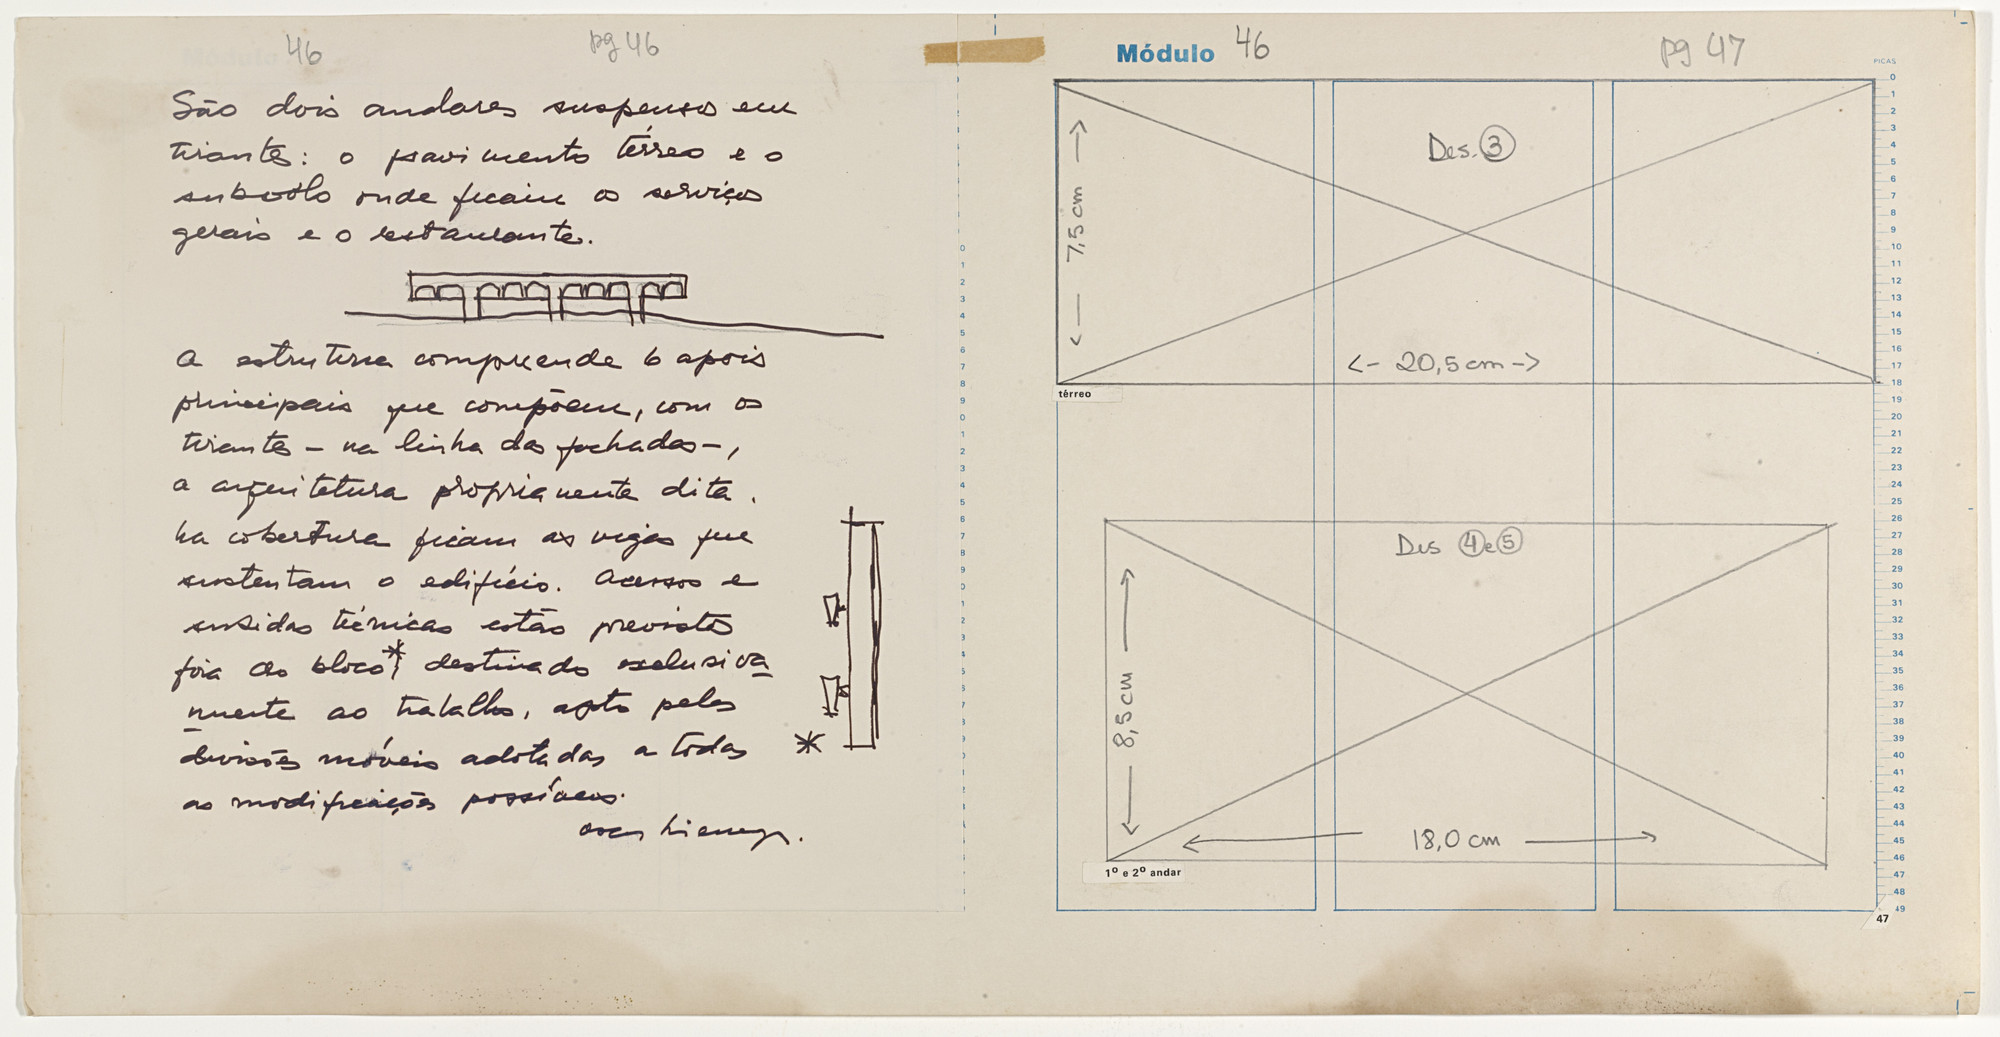 46
pg 46
São dois andares suspensos em
tirantes: o pavimento térreo e o
subsolo onde ficam os serviços
gerais e o restaurante.
A estrutura compreende 6 apois
principais que compõem, com os
tirantes – na linha das fachadas –,
a arquitetura propriamente dita.
Na cobertura ficam as vigas que
sustentam o edifício. Acessos e
subidas técnicas estão previstos
fora do bloco*, destinado exclusiva
mente ao trabalho, apto pelas
divisões móveis adotadas a todas
as modificações possíveis.
*
Oscar Niemeyer.
Módulo 46
pg 47
PICAS
0
1
2
3
4
5
6
7
8
9
10
11
12
13
14
15
16
17
18
19
20
21
22
23
24
25
26
27
28
29
30
31
32
33
34
35
36
37
38
39
40
41
42
43
44
45
46
47
48
49
Des. 3
7,5 cm
20,5 cm
térreo
Des 4 e 5
8,5 cm
18,0 cm
1º e 2º andar
47